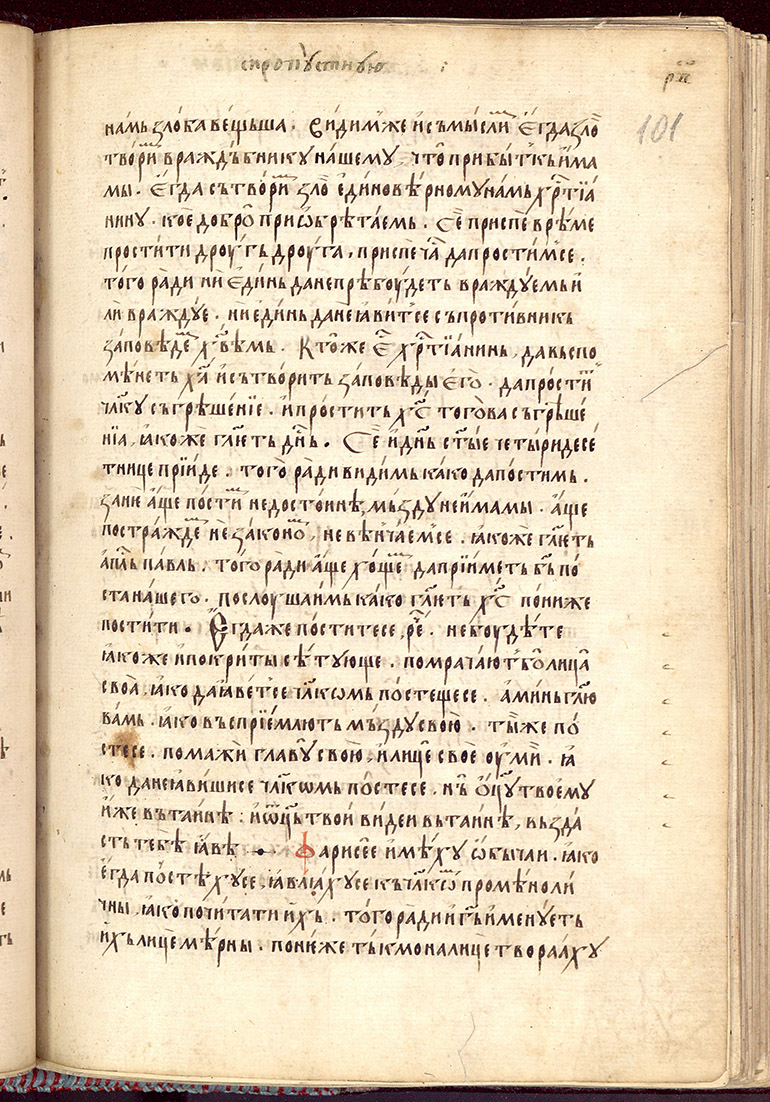 сыропꙋстнꙋю
р҃п
101
намь злоба веꙿшьша . Видим же и съмысли . Егда зло
твори враждьбникꙋ нашемꙋ , что прибытькь има
мы . Егда сътвори зло единовѣрномꙋ намь хрⷭ҇тїа
нинꙋ . кое добро приѡбрѣтаемь . Се приспе врѣме
простити дрꙋгь дрꙋга , приспе ча да простимсе .
того ради ни единь да непрѣбоудеть враждꙋемь и
ли враждꙋе . ни единь да не ꙗвитсе съпротивникь
заповеде хв҃емь . Кто же е хрⷭ҇тїанинь , да вьспо
мѣнеть ха҃ и сътворить заповѣды его . да прости
чл҃кꙋ съгрѣшенїе . и простить хс҃ тогова съгрѣше
нїа , ꙗкоже гл҃еть дн҃ь . Се и дн҃ь ст҃ые четыридесе
тнице прїиде . того ради видимь како да постимь .
зане аще пости недостоинѣ, мьздꙋ не имамы . аще
постражде не законо , не вѣнчаемсе . ꙗкоже гл҃еть
ап҃ль павль . того ради аще хоще да прїиметь бь҃ по
ста нашего . послоушаимь како гл҃еть хс҃ пониже
постити . Егда же поститесе, ре҃ . не боудѣте
ꙗкоже ипокриты сѣтꙋюще . помрачають бо лица
своа , ꙗко да ꙗветсе чл҃кѡмь постещесе . аминь гл҃ю
вамь . ꙗко въспрїемлють мъздꙋ свою . ты же по
стесе . помажи главꙋ свою , и лице свое оумїи . ꙗ
ко да не ꙗвишисе чл҃кѡмь постесе . нь ѡц҃ꙋ твоемꙋ
иже вътаинѣ : и ѡц҃ь твои видеи вътаинѣ , вьзда
сть тебѣ ꙗвѣ Фарисее имѣхꙋ ѡбычаи . ꙗко
егда постѣхꙋсе . ꙗвлꙗхꙋсе къ чл҃кѡ промѣноли
чны . ꙗко почитати ихь . того ради и гь҃ именꙋеть
ихь лицемѣрны . понеже тъкмо на лице твораахꙋ